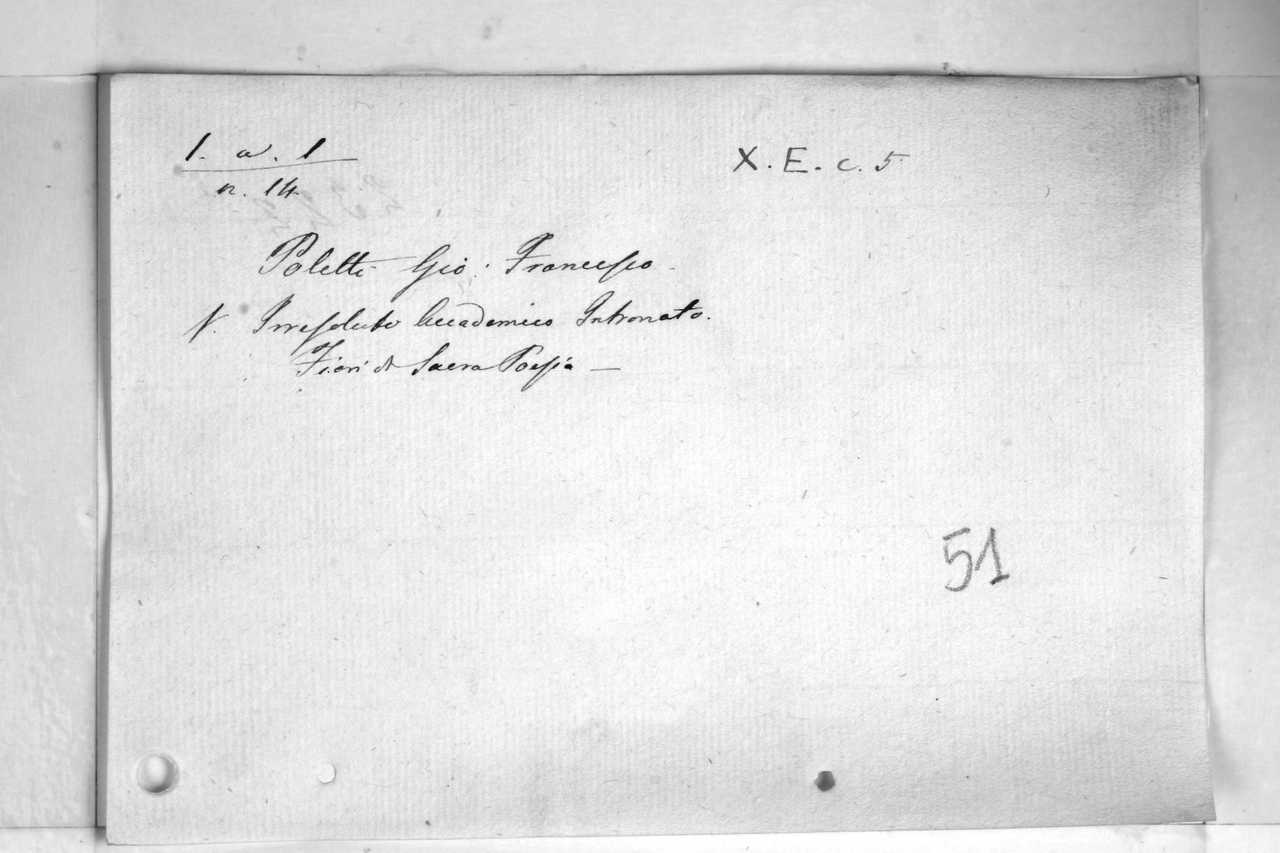 1. a. 1
X. E. c. 5
n. 14
Poletti Gio: Francesco
V. Irresoluto Accademico Intronato.
Fiori di Sacra Poesia —
51